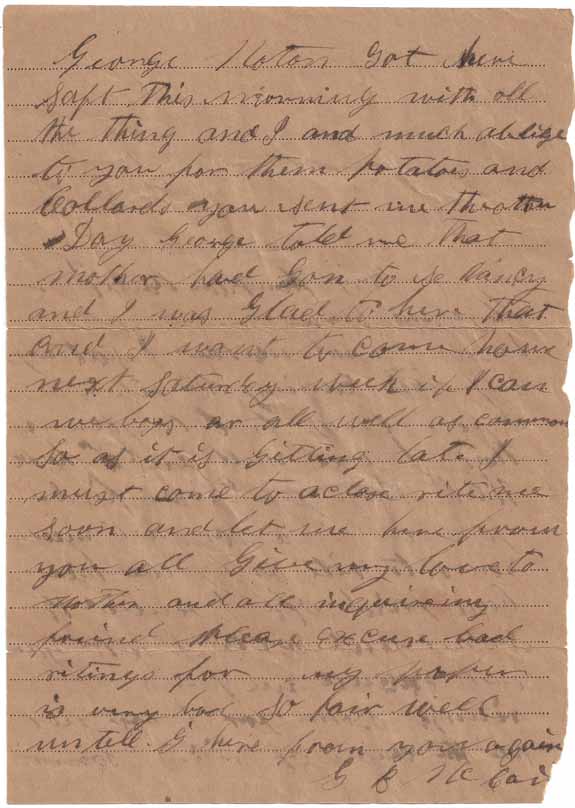 George Noton Got here
Saft This morning with all
the thing and I and much ablige
to you for them potatoes and
Collards you sent me the
Day George told me That
Mother had Goin to
and I was Glad to here That
and I want to come home
next Saturdy week if I can
we boys ar all well as common
So as it is Gitting late I
must come to a close rite me
soon and let me here from
you all Give my love to
Mother and all inquireing
friend Please excuse bad
ritings for my paper
is very bad So fair well
untell I here from you again
G